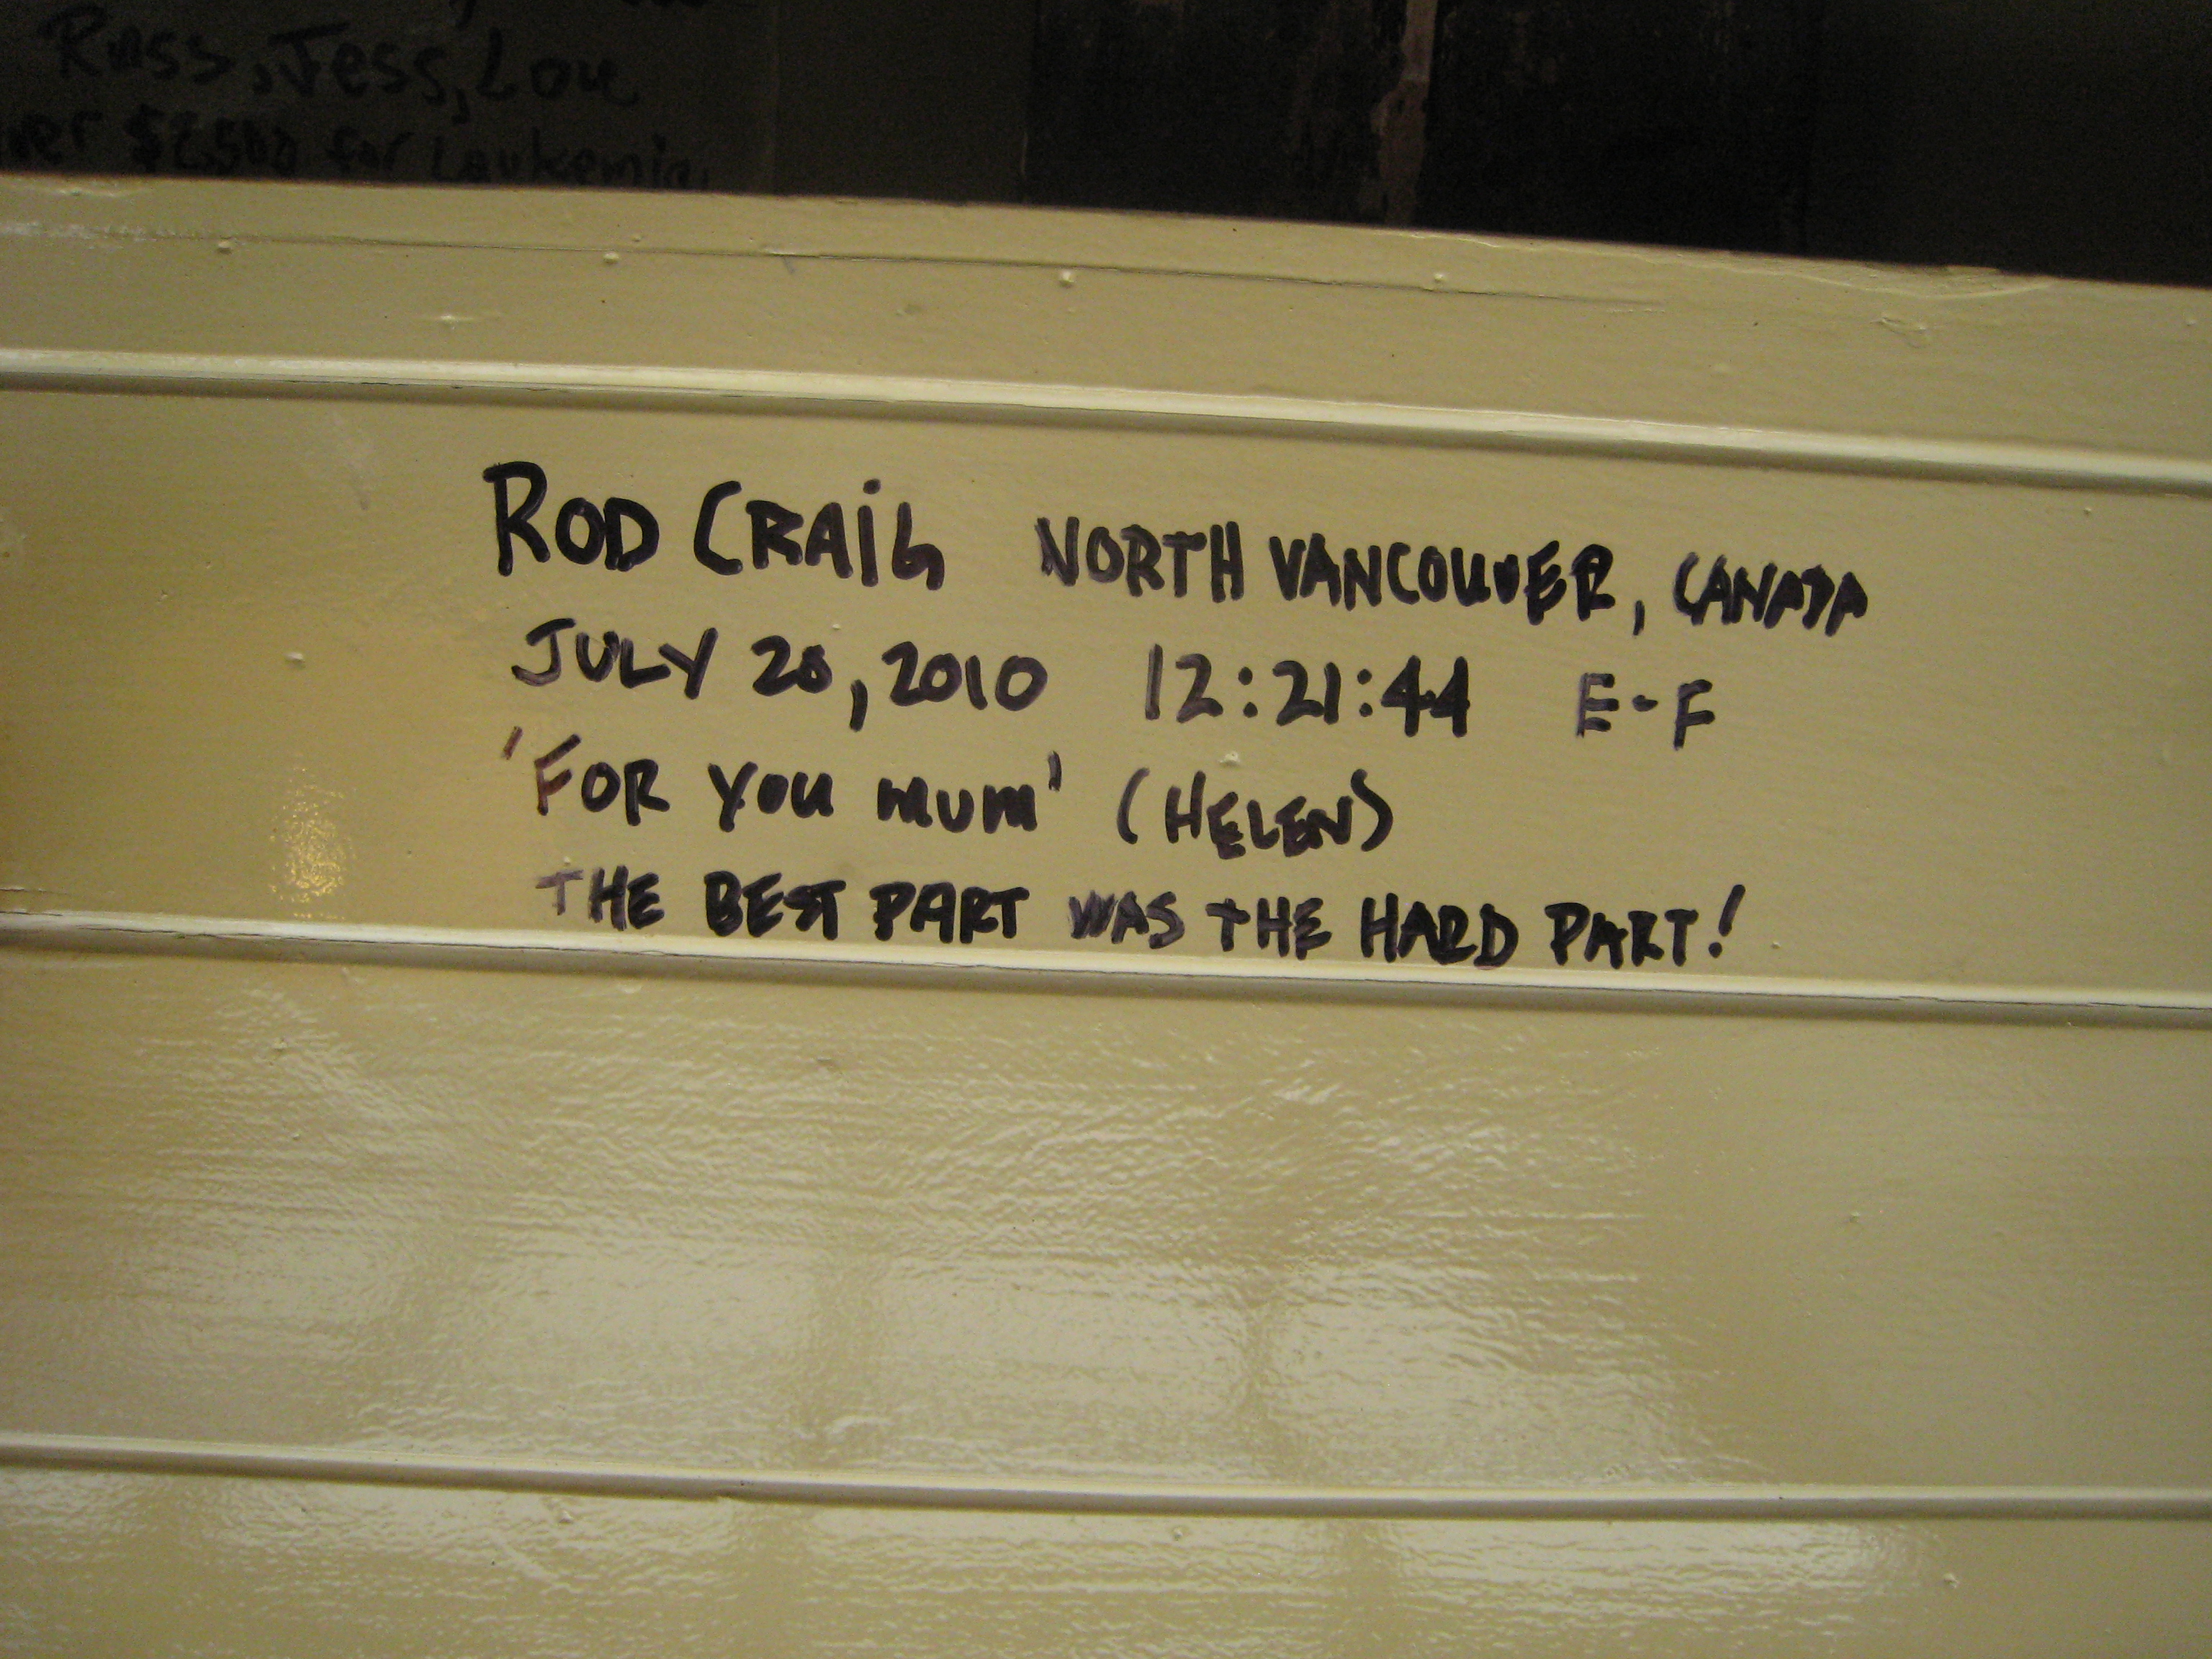 Russ, Jess, Lou
$2,500 for Leukemia
ROD CRAIG NORTH VANCOUVER, CANADA
JULY 20, 2010 12:21:44 E-F
'FOR YOU MUM' (HELEN)
THE BEST PART WAS THE HARD PART!